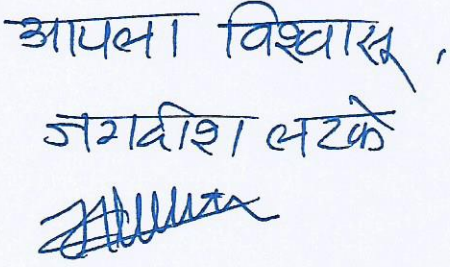 आपला विश्वासू,
जगदीश लटके